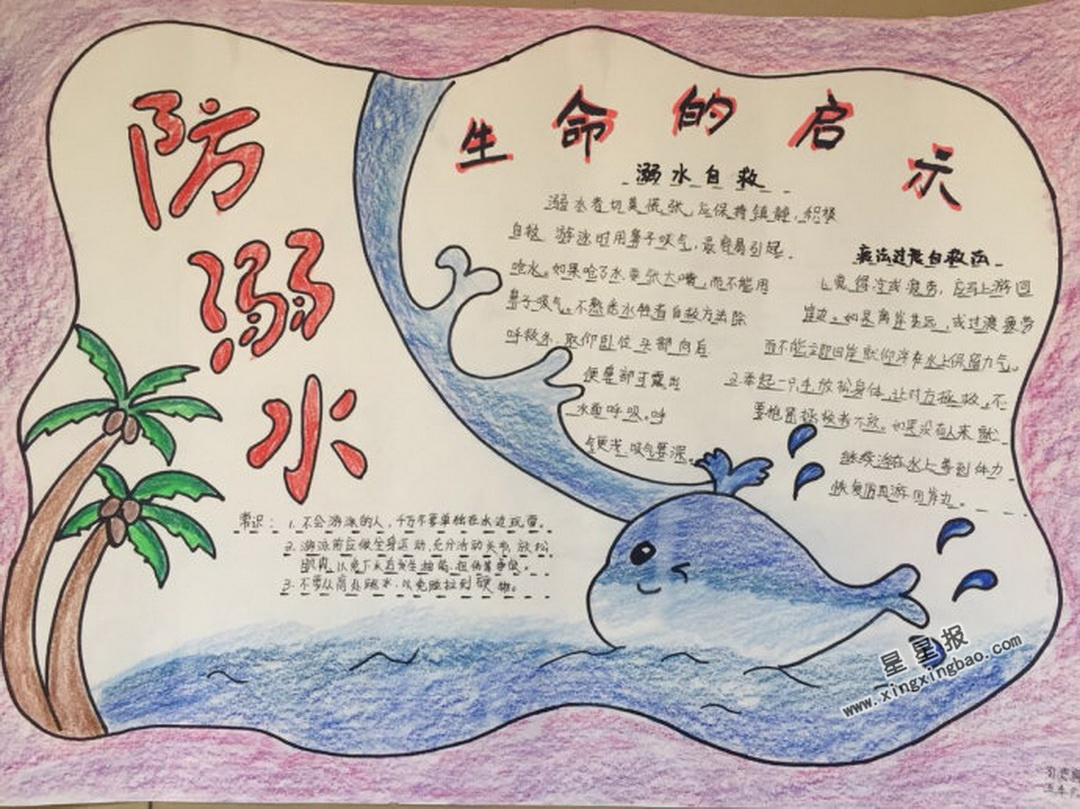 防
溺
水
生命的启示
溺水自救
溺水者切莫慌张，应保持镇静，积极
自救 游泳时用鼻子吸气，最容易引起
呛水。如果呛了水要张大嘴，而不能用
鼻子吸气。不熟悉水性者自救方法除
呼救外，取仰卧位 头部向后
使鼻部可露出
水面呼吸。呼
气要浅，吸气要深。
疲法过度自救法
1.觉得冷或疲劳，应马上游回
岸边。如果离岸甚远，或过渡疲劳
而不能立即回岸就仰浮在水上保留力气。
2.举起一只手放松身体，让对方拯救。不
要抱紧拯救者不放。如果没有人来 就
继续浮在水上等到体力
恢复后再游回岸边。
常识：1.不会游泳的人，千万不要单独在水边玩耍。
2.游泳前应做全身运动，充分活动关节，放松
肌肉，以免下水后发生抽筋、扭伤等事故。
3.不要从高处跳水，以免脸拉到硬物。
星星报
www.xingxingbao.com